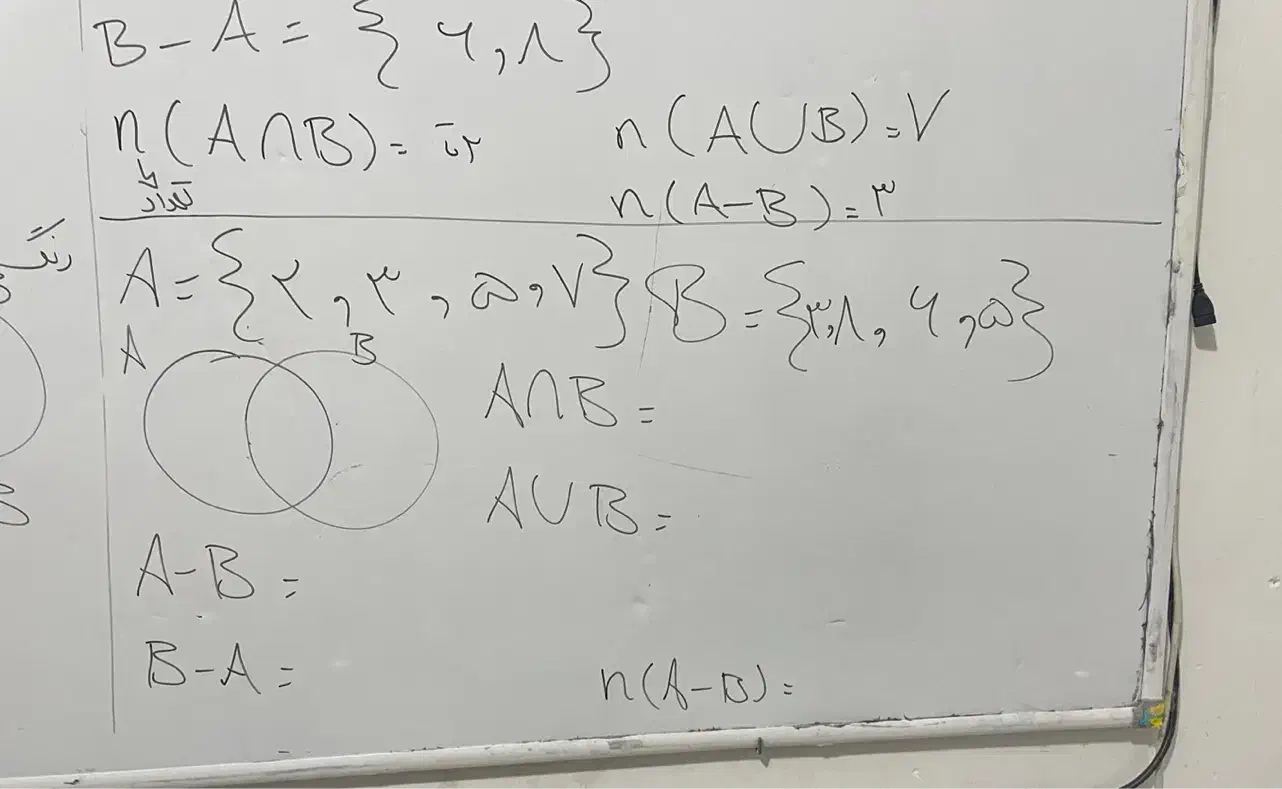 B - A = { ۶ , ۸ }
n(A∩B) = ۲تا n(A∪B) = ۷
تعداد
n(A-B) = ۳
رنگ
A = { ۲ , ۳ , ۵ , ۷ } B = { ۳ , ۸ , ۶ , ۵ }
A B
A∩B =
A∪B =
A-B =
B-A = n(A-B) =